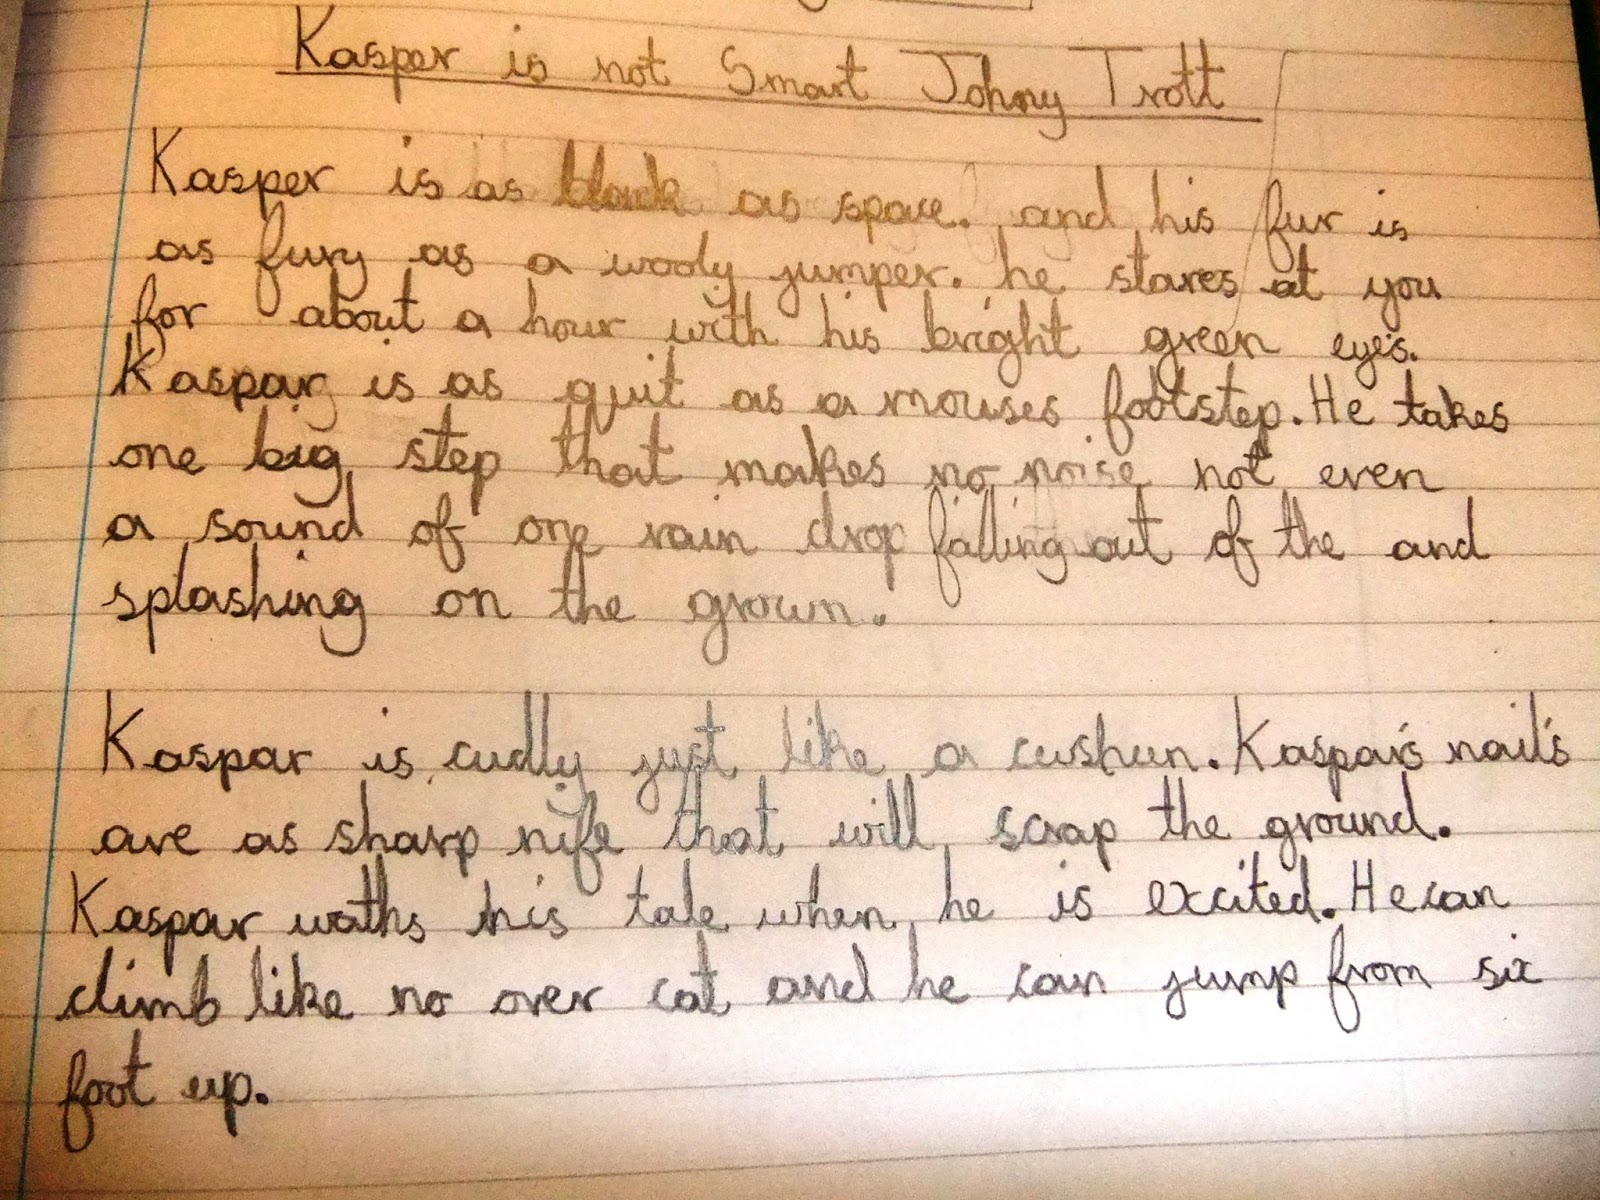 Kasper is not Smart Johny Trott
Kasper is as black as space. and his fur is
as fury as a wooly jumper. he stares at you
for about a hour with his bright green eye's.
Kaspar is as quit as a mouses footstep. He takes
one big step that makes no noise not even
a sound of one rain drop falling out of the and
splashing on the groun.
Kaspar is cudly just like a cushun. Kaspar's nail's
are as sharp nife that will scrap the ground.
Kaspar waths his tale when he is excited. He can
climb like no over cat and he can jump from six
foot up.